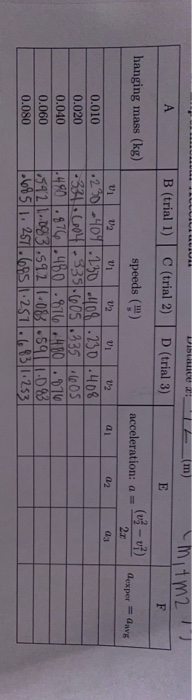 (m)
(m1+m2)
A B (trial 1) C (trial 2) D (trial 3) E F
hanging mass (kg) speeds (m/s) acceleration: a = (v₂² − v₁²)/2x aexper = aavg
v₁ v₂ v₁ v₂ v₁ v₂ a₁ a₂ a₃
0.010 .230 .409 .230 .408 .230 .408
0.020 .334 .604 .335 .605 .335 .605
0.040 .480 .876 .480 .876 .480 .876
0.060 .592 1.083 .592 1.082 .591 1.083
0.080 .685 1.257 .685 1.257 .683 1.253